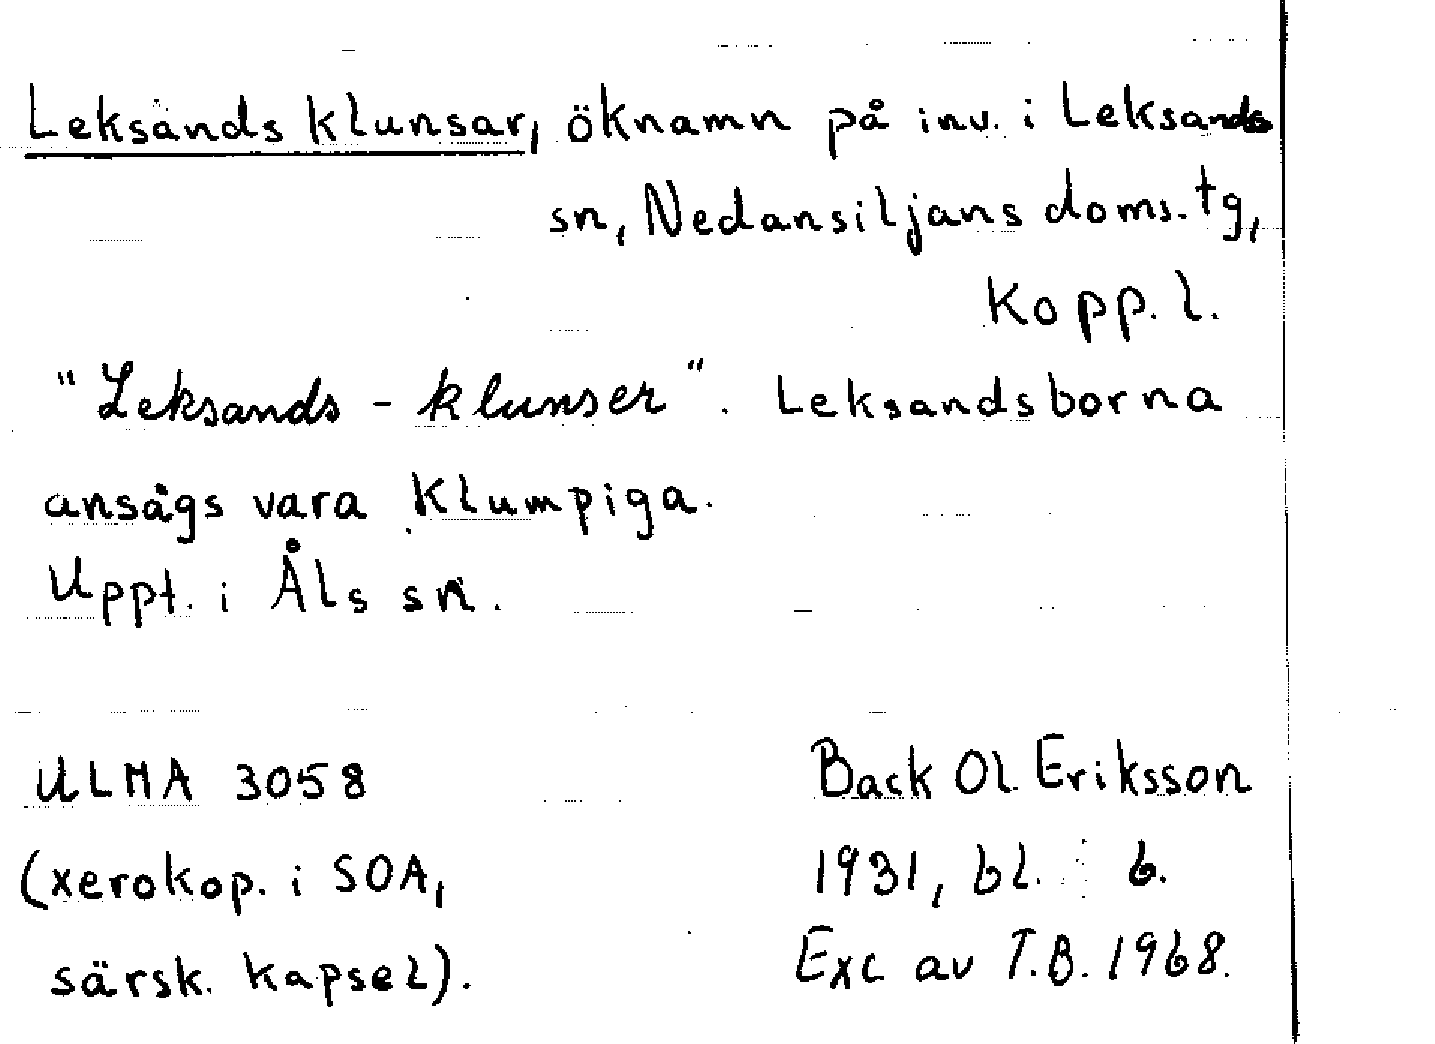 Leksands klunsar, öknamn på inv. i Leksands
sn, Nedansiljans doms. tg,
Kopp. l.
"Leksands - klunser". Leksandsborna
ansågs vara klumpiga.
Uppt. i Åls sn.
ULMA 3058
(xerokop. i SOA,
särsk. kapsel).
Back Ol. Eriksson
1931, bl. 6.
Exc av T.B. 1968.